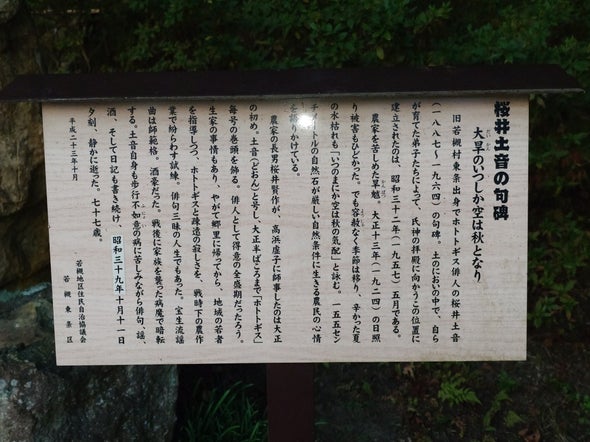 桜井土音の句碑
大旱のいつしか空は秋となり
おおひでり
旧若槻村東条出身でホトトギス俳人の桜井土音
(一八八七～一九六四)の句碑。土のにおいの中で、自ら
が育てた弟子たちによって、氏神の拝殿に向かうこの位置に
建立されたのは、昭和三十二年(一九五七)五月である。
農家を苦しめた旱魃。大正十三年(一九二四)の日照
り被害もひどかった。でも容赦なく季節は移り、辛かった夏
の水枯れも「いつのまにか空は秋の気配」と詠む。一五五セン
チメートルの自然石が厳しい自然条件に生きる農民の心情
を語りかけている。
農家の長男桜井賢作が、高浜虚子に師事したのは大正
の初め。土音(どおん)と号し、大正半ばころまで「ホトトギス」
毎号の巻頭を飾る。俳人として得意の全盛期だったろう。
生家の事情もあり、やがて郷里に帰ってから、地域の若者
を指導しつつ、ホトトギスと疎遠の寂しさを、戦時下の農作
業で紛らわす試練。俳句三昧の人生でもあった。宝生流謡
曲は師範格。酒豪だった。戦後に家族を襲った病魔で暗転
する。土音自身も歩行不如意の病に苦しみながら俳句、謡、
ふにょい
酒、そして日記も書き続け、昭和三十九年十月十一日
夕刻、静かに逝った。七十七歳。
平成二十三年十月
若槻地区住民自治協議会
若槻東条区